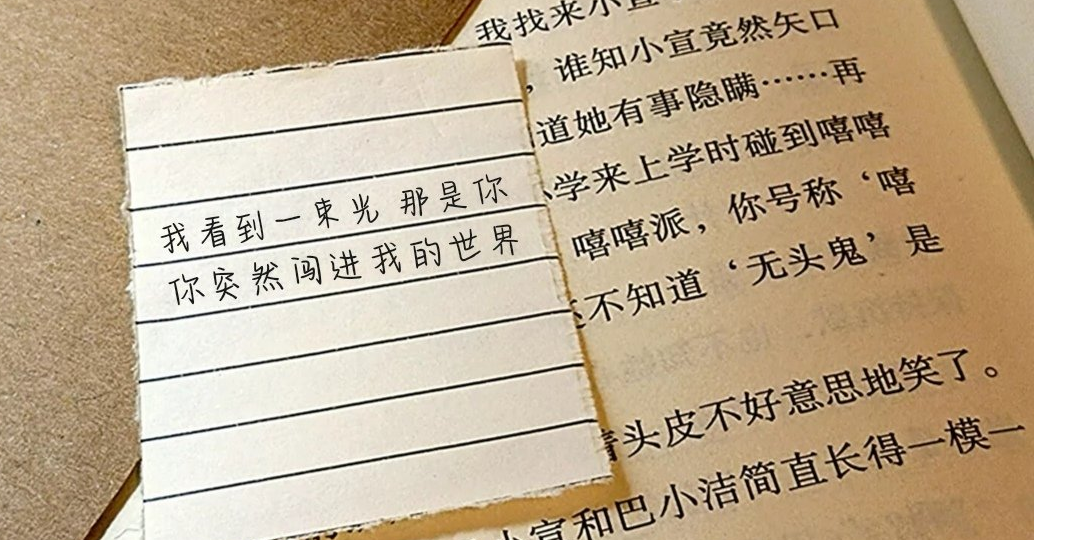 我看到一束光 那是你
你突然闯进我的世界
我找来小宣
，谁知小宣竟然矢口
道她有事隐瞒……再
小学来上学时碰到嘻嘻
嘻嘻派，你号称‘嘻
不知道‘无头鬼’是
着头皮不好意思地笑了。
小宣和巴小洁简直长得一模一